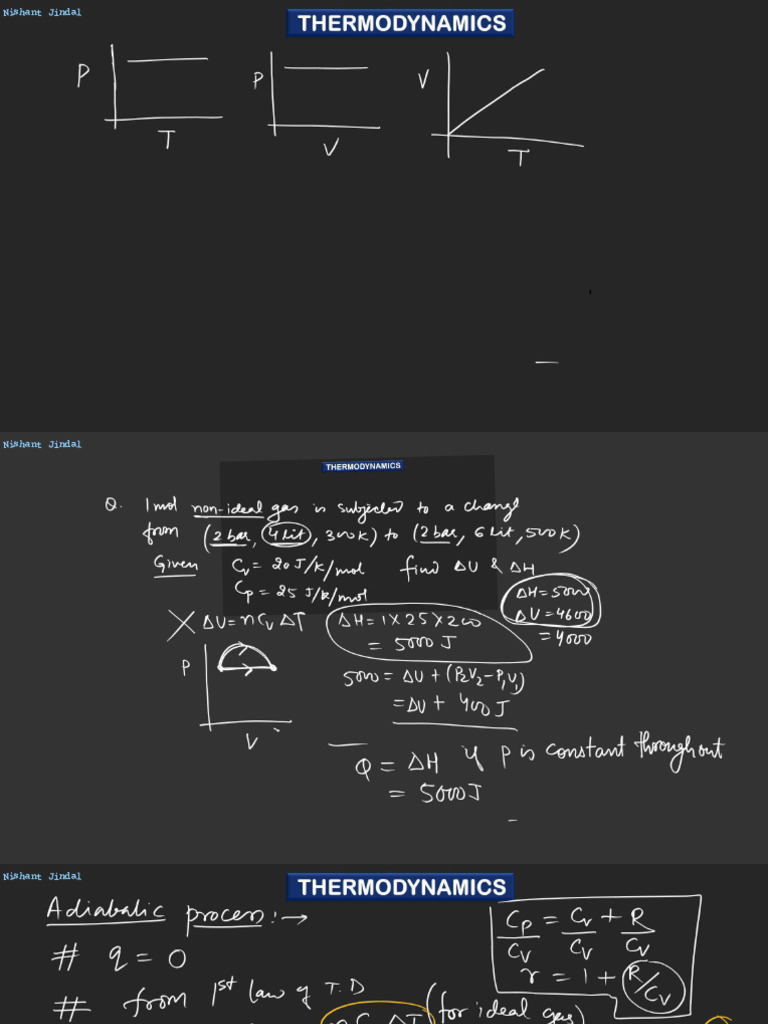 Nishant Jindal
THERMODYNAMICS
P
T
P
V
V
T
Nishant Jindal
THERMODYNAMICS
Q. 1 mol non-ideal gas is subjected to a change
from (2 bar, 4 lit, 300K) to (2 bar, 6 lit, 500K)
Given Cv = 20 J/K/mol find ΔU & ΔH
Cp = 25 J/K/mol
ΔH = 5000
ΔU = 4600
= 4000
X ΔU = nCvΔT
ΔH = 1 × 25 × 200
= 5000 J
P
V
5000 = ΔU + (P2V2 - P1V1)
= ΔU + 400 J
Q = ΔH if P is constant throughout
= 5000 J
Nishant Jindal
THERMODYNAMICS
Adiabatic process:→
# q = 0
Cp/Cv = Cv/Cv + R/Cv
r = 1 + R/Cv
# from 1st law of T.D
(for ideal gas)